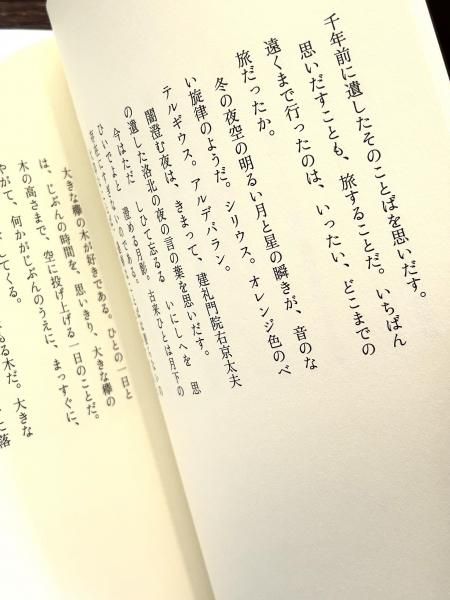 千年前に遺したそのことばを思いだす。
思いだすことも、旅することだ。いちばん
遠くまで行ったのは、いったい、どこまでの
旅だったか。
冬の夜空の明るい月と星の瞬きが、音のな
い旋律のようだ。シリウス。オレンジ色のベ
テルギウス。アルデバラン。
闇澄む夜は、きまって、建礼門院右京太夫
の遺した洛北の夜の言の葉を思いだす。
今はただ　しひて忘るる　いにしへを　思
ひいでよと　澄める月影　古来ひとは月下の
大きな欅の木が好きである。ひとの一日と
は、じぶんの時間を、思いきり、大きな欅の
木の高さまで、空に投げ上げる一日のことだ。
やがて、何かがじぶんのうえに、まっすぐに、
してくる。
る木だ。大きな
に落